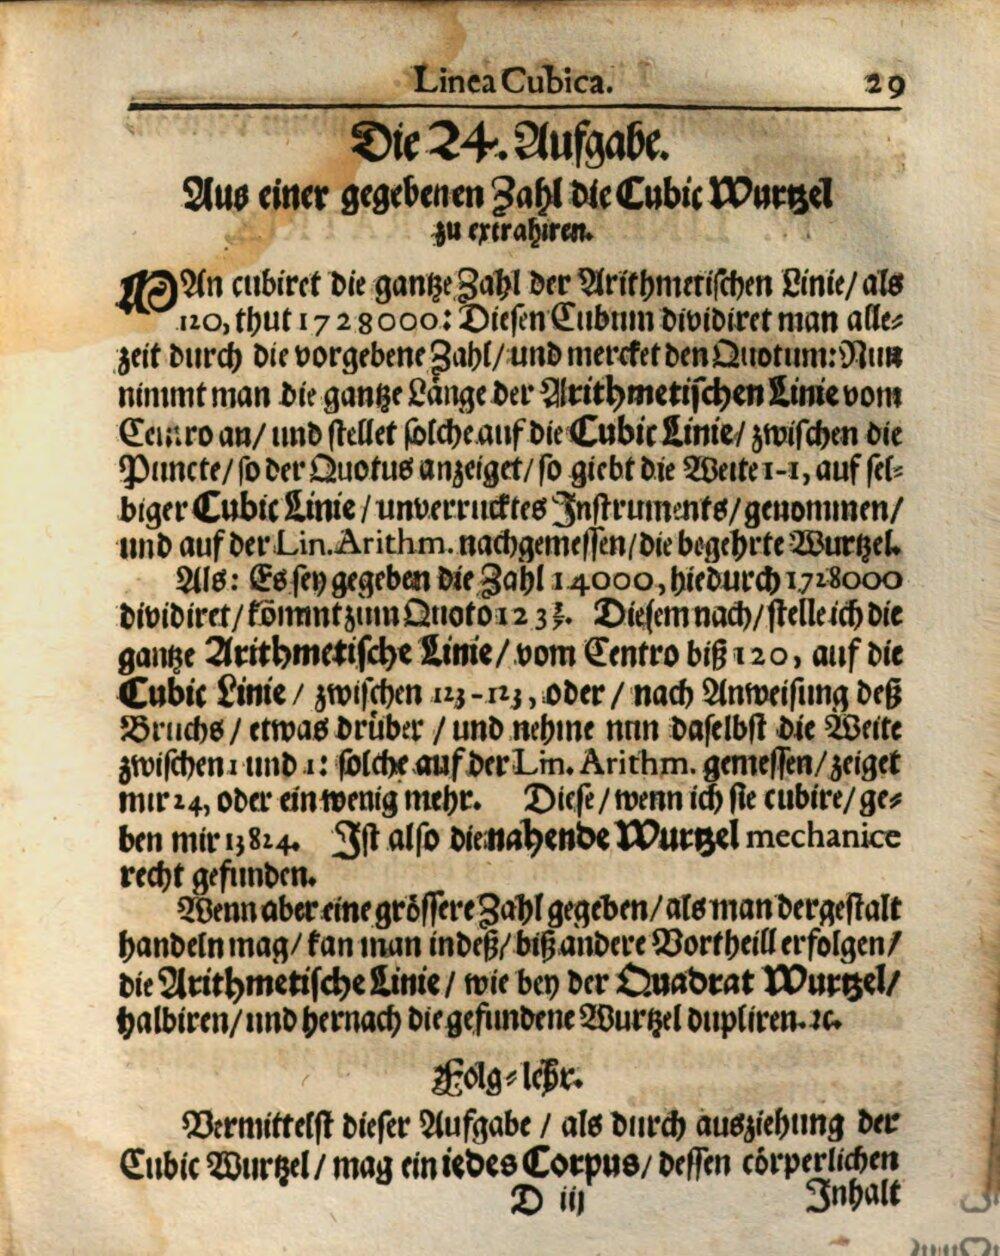 Linea Cubica. 29
Die 24. Aufgabe.
Aus einer gegebenen Zahl die Cubic Wurtzel
zu extrahiren.
MAn cubiret die gantze Zahl der Arithmetischen Linie/ als
120, thut 1728000: Diesen Cubum dividiret man alle⸗
zeit durch die vorgebene Zahl/ und mercket den Quotum: Nun
nimmt man die gantze Länge der Arithmetischen Linie vom
Centro an/ und stellet solche auf die Cubic Linie/ zwischen die
Puncte/ so der Quotus anzeiget/ so giebt die Weite 1-1, auf sel⸗
biger Cubic Linie/ unverrucktes Instruments/ genommen/
und auf der Lin. Arithm. nachgemessen/ die begehrte Wurtzel.
Als: Es sey gegeben die Zahl 14000, hiedurch 1728000
dividiret/ kömmt zum Quoto 123 3/7. Diesem nach/ stelle ich die
gantze Arithmetische Linie/ vom Centro biß 120, auf die
Cubic Linie/ zwischen 123-123, oder/ nach Anweisung deß
Bruchs/ etwas drüber/ und nehme nun daselbst die Weite
zwischen 1 und 1: solche auf der Lin. Arithm. gemessen/ zeiget
mir 24, oder ein wenig mehr. Diese/ wenn ich sie cubire/ ge⸗
ben mir 13824. Ist also die nahende Wurtzel mechanice
recht gefunden.
Wenn aber eine grössere Zahl gegeben/ als man dergestalt
handeln mag/ kan man indeß/ biß andere Vortheil erfolgen/
die Arithmetische Linie/ wie bey der Quadrat Wurtzel/
halbiren/ und hernach die gefundene Wurtzel dupliren. ꝛc.
Folg⸗lehr.
Vermittelst dieser Aufgabe/ als durch ausziehung der
Cubic Wurtzel/ mag ein iedes Corpus/ dessen cörperlichen
D iij Inhalt